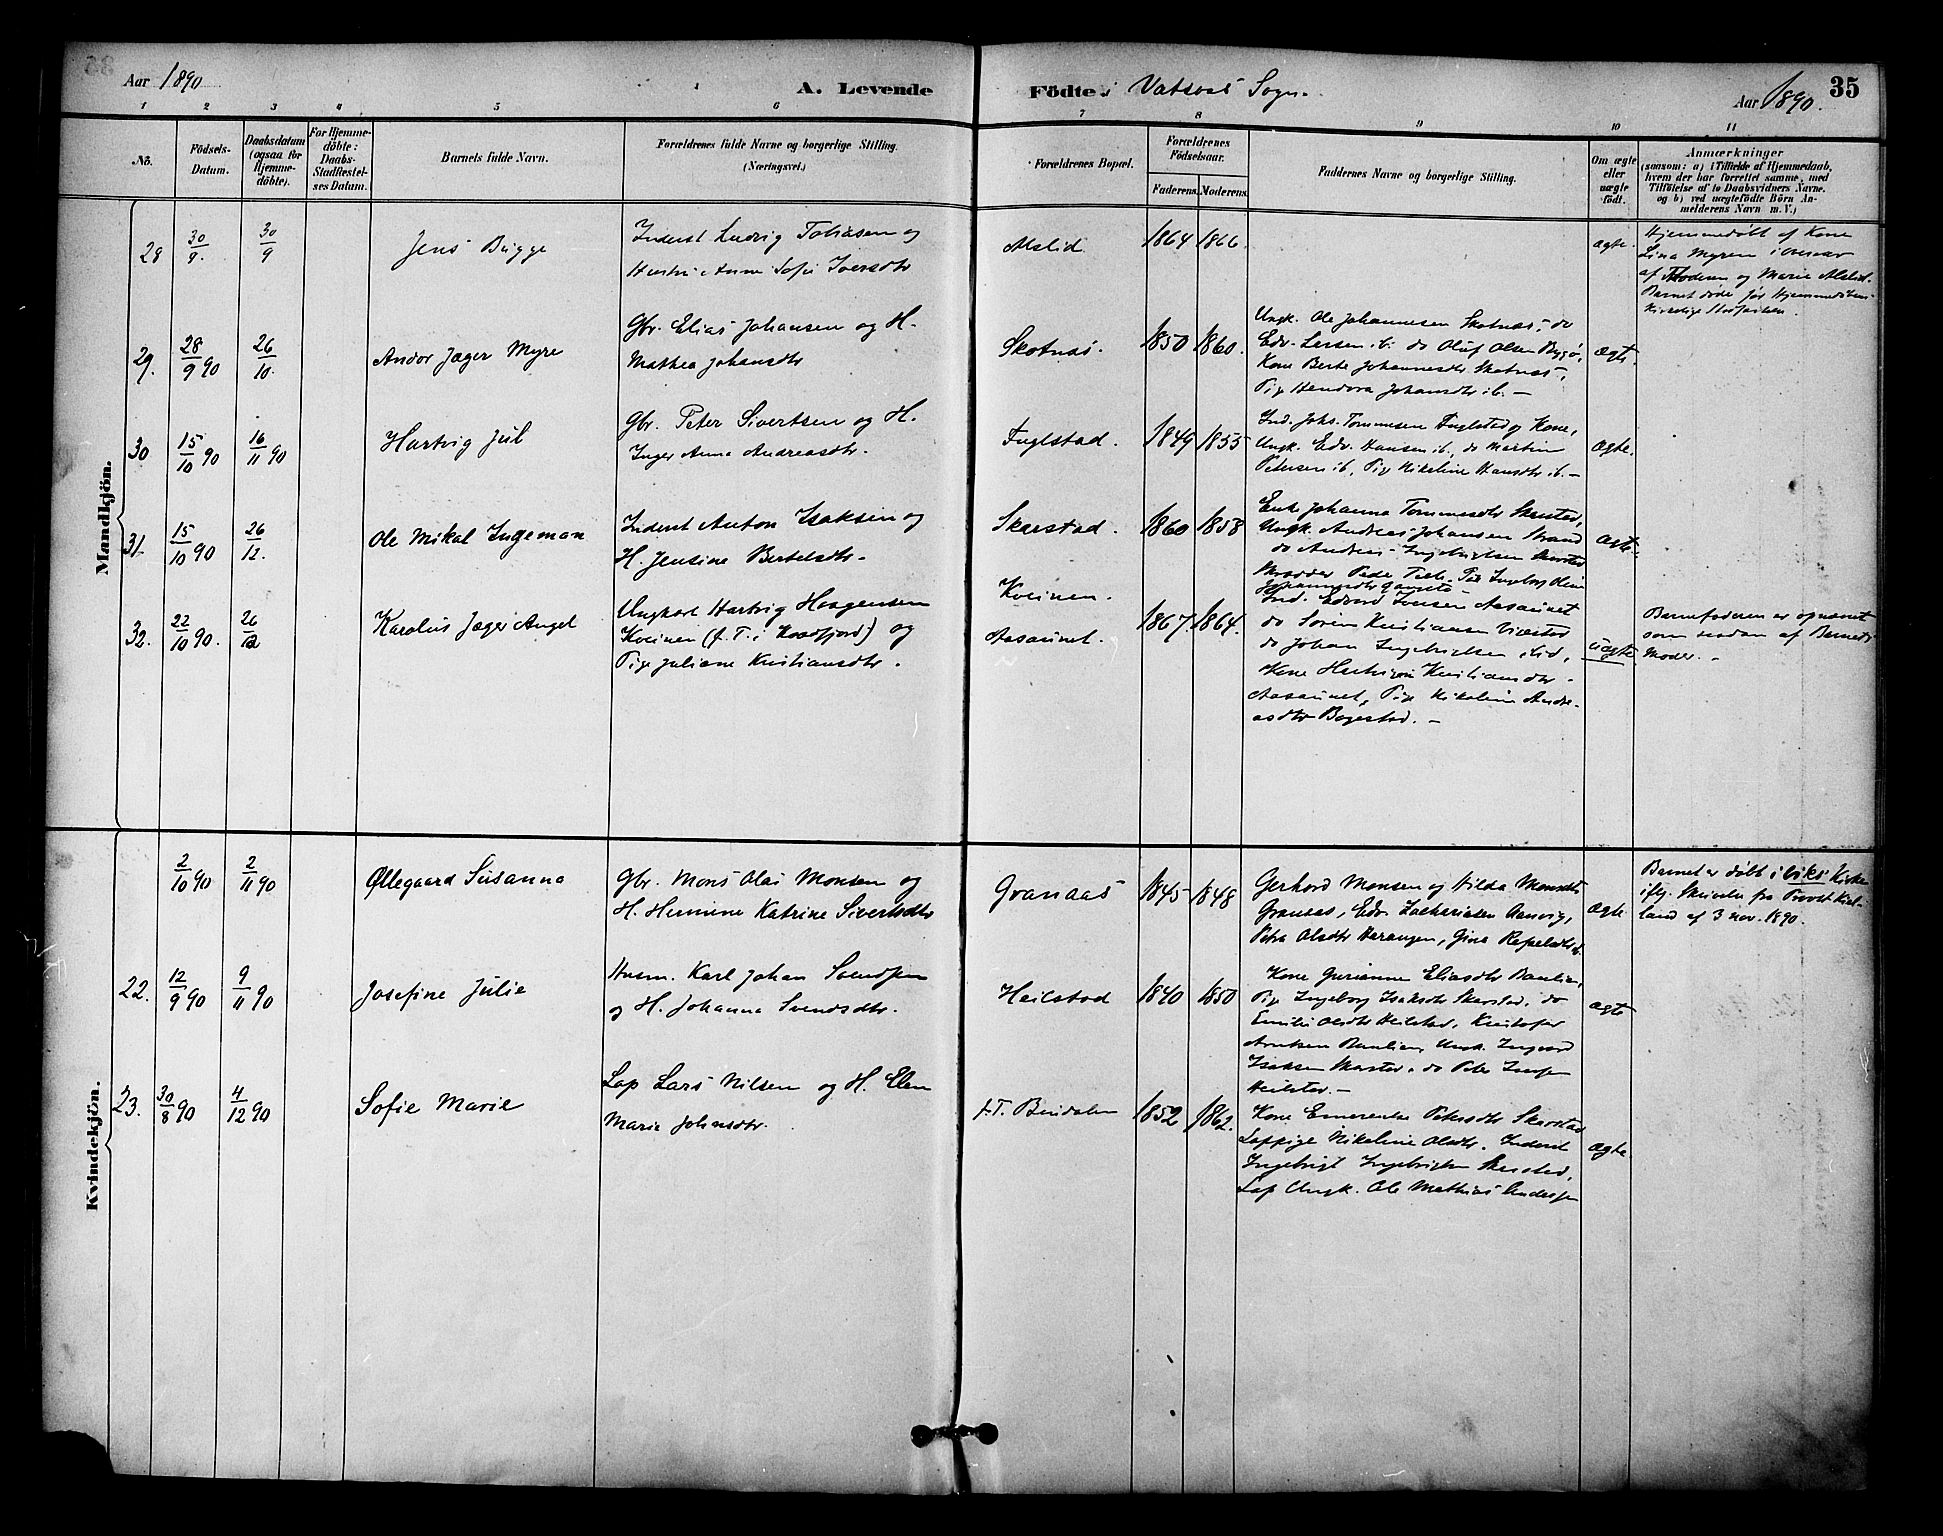 Aar 1890
A. Levende
Födte i Vatsaas Sogn.
Aar 1890.
35
1 2 3 4 5 6 7 8 9 10 11
No.
Födsels-
Datum.
Daabsdatum
(ogsaa for
Hjemme-
döbte).
For Hjemme-
döbte:
Daabs-
Stadfæstel-
ses Datum.
Barnets fulde Navn.
Forældrenes fulde Navne og borgerlige Stilling.
(Næringsvei.)
Forældrenes Bopæl.
Forældrenes
Födselsaar.
Faderens. Moderens.
Faddernes Navne og borgerlige Stilling.
Om ægte
eller
uægte
födt.
Anmærkninger
(saasom: a) i Tilfælde af Hjemmedaab,
hvem der har forrettet samme, med
Tilföielse af to Daabsvidners Navne.
og b) ved uægtefödte Börn An-
melderens Navn m. V.)
Mandkjön.
28 30/9. 30/9
Jens Bugge
Inderst Ludvig Tobiasen og
Hustru Anne Sofie Iversdtr
Alslid
1864 1866.
ægte.
Hjemmedøbt af Kone
Lina Myren i Overvær
af Moderen og Marie Alslid.
Barnet døde før Hjemmedaabens
kirkelige Stadfæstelse.
29. 28/9 90 26/10.
Andor Jæger Myre
Gbr. Elias Johansen og H.
Mathea Johansdtr
Skotnæs.
1850 1860.
Ungk. Ole Johannesen Skotnæs, do
Edv. Larsen ib. do Oluf Olsen Bygø,
Kone Berte Johannesdtr Skotnæs,
Pige Hendora Johansdtr ib. –
ægte.
30 15/10 90 16/11 90
Hartvig Jul
Gbr. Peter Sivertsen og H.
Inger Anna Andreasdtr.
Fuglstad.
1849 1855
Ind. Johs. Tommesen Fuglstad og Kone,
Ungk. Edv. Hansen ib., do Martin
Petersen ib, Pige Nikoline Hansdtr ib. –
ægte.
31. 15/10 90 26/12.
Ole Mikal Ingeman
Inderst Anton Isaksen og
H. Jensine Bertelsdtr.
Skarstad.
1860 1858
Enke Johanna Tommesdtr Skarstad,
Ungk. Andreas Johansen Strand
do Andreas Ingebrigtsen Skarstad
ægte.
32. 22/10 90. 26/12
Karolus Jæger Angel
Ungkarl Hartvig Haagensen
Kveinen (f. T. i Kvadfjord) og
Pige Juliane Kristiansdtr.
Kveinen.
Aasaunet.
1867. 1864.
Ind. Edvard Iversen Aasaunet
do Søren Kristiansen Viestad
do Johan Ingebrigtsen Lid,
Kone Kristiansdtr
Aasaunet, Pige Nikoline Andre-
asdtr Bogestad. –
uægte
Barnefaderen er opnævnt
som saadan af Barnets
Moder. –
Kvindekjön.
2/10 90 2/11 90
Øllegaard Susanna
Gbr. Mons Olai Monsen og
H. Hermine Katrine Sivertsdtr
Granaas
1845 1848
Gerhard Monsen og Hilda Monsdtr
Granaas, Edv. Zachariasen Aanvig,
Petra Olsdtr Harangen, Gina Rafaelsdtr ib.
ægte
Barnet er døbt i Viks Kirke
iflg. Skrivelse fra Provst Kiel-
land af 3 nov. 1890.
22. 12/9 90 9/11 90
Josefine Julie
Husm. Karl Johan Svendsen
og H. Johanna Svendsdtr.
Heilstad
1840 1850
Kone Gurianna Eliasdtr Baulien,
Pige Ingeborg Isaksdtr Skarstad, do
Emilie Olsdtr Heilstad, Kristofer
Arntsen Baulien, Ungk. Ingvard
Isaksen Skarstad, do Peter
Heilstad. –
ægte
23. 30/8 90 4/12 90
Sofie Marie
Lap Lars Nilsen og H. Elen
Marie Johnsdtr.
f. T. Bindalen
1852 1862.
Kone Emerentse Petersdtr Skarstad
Lappige Nikoline Olsdtr. Inderst
Ingebrigt Ingebrigtsen Skarstad,
Lap Ungk. Ole Mathias Andersen
ægte.